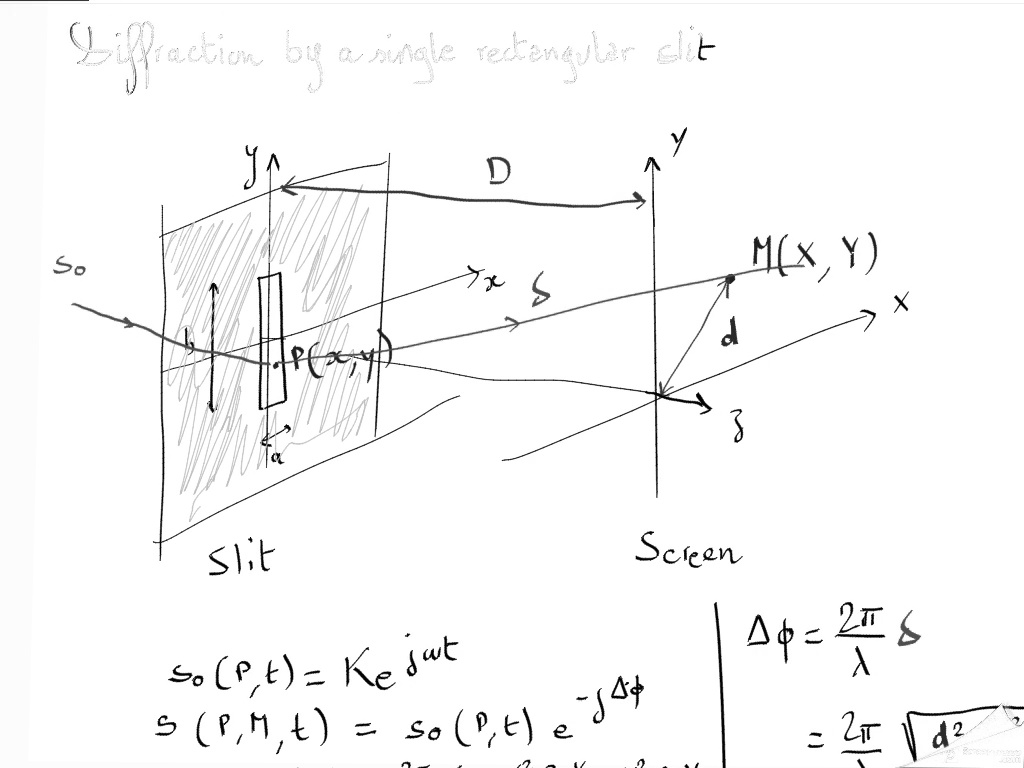 Diffraction by a single rectangular slit
y
D
Y
M(X, Y)
s₀
x
δ
X
b
P(x,y)
d
z
a
Slit
Screen
s₀(P,t) = K e^{jωt}
Δφ = 2π/λ δ
s(P,M,t) = s₀(P,t) e^{-jΔφ}
= 2π/λ √d²